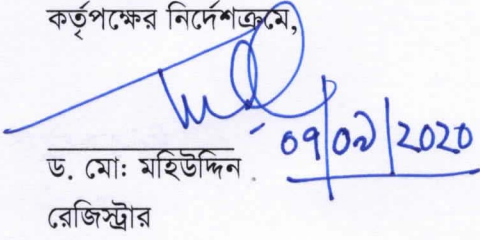 কর্তৃপক্ষের নির্দেশক্রমে,
০৭|০৯|2020
ড. মোঃ মহিউদ্দিন
রেজিস্ট্রার